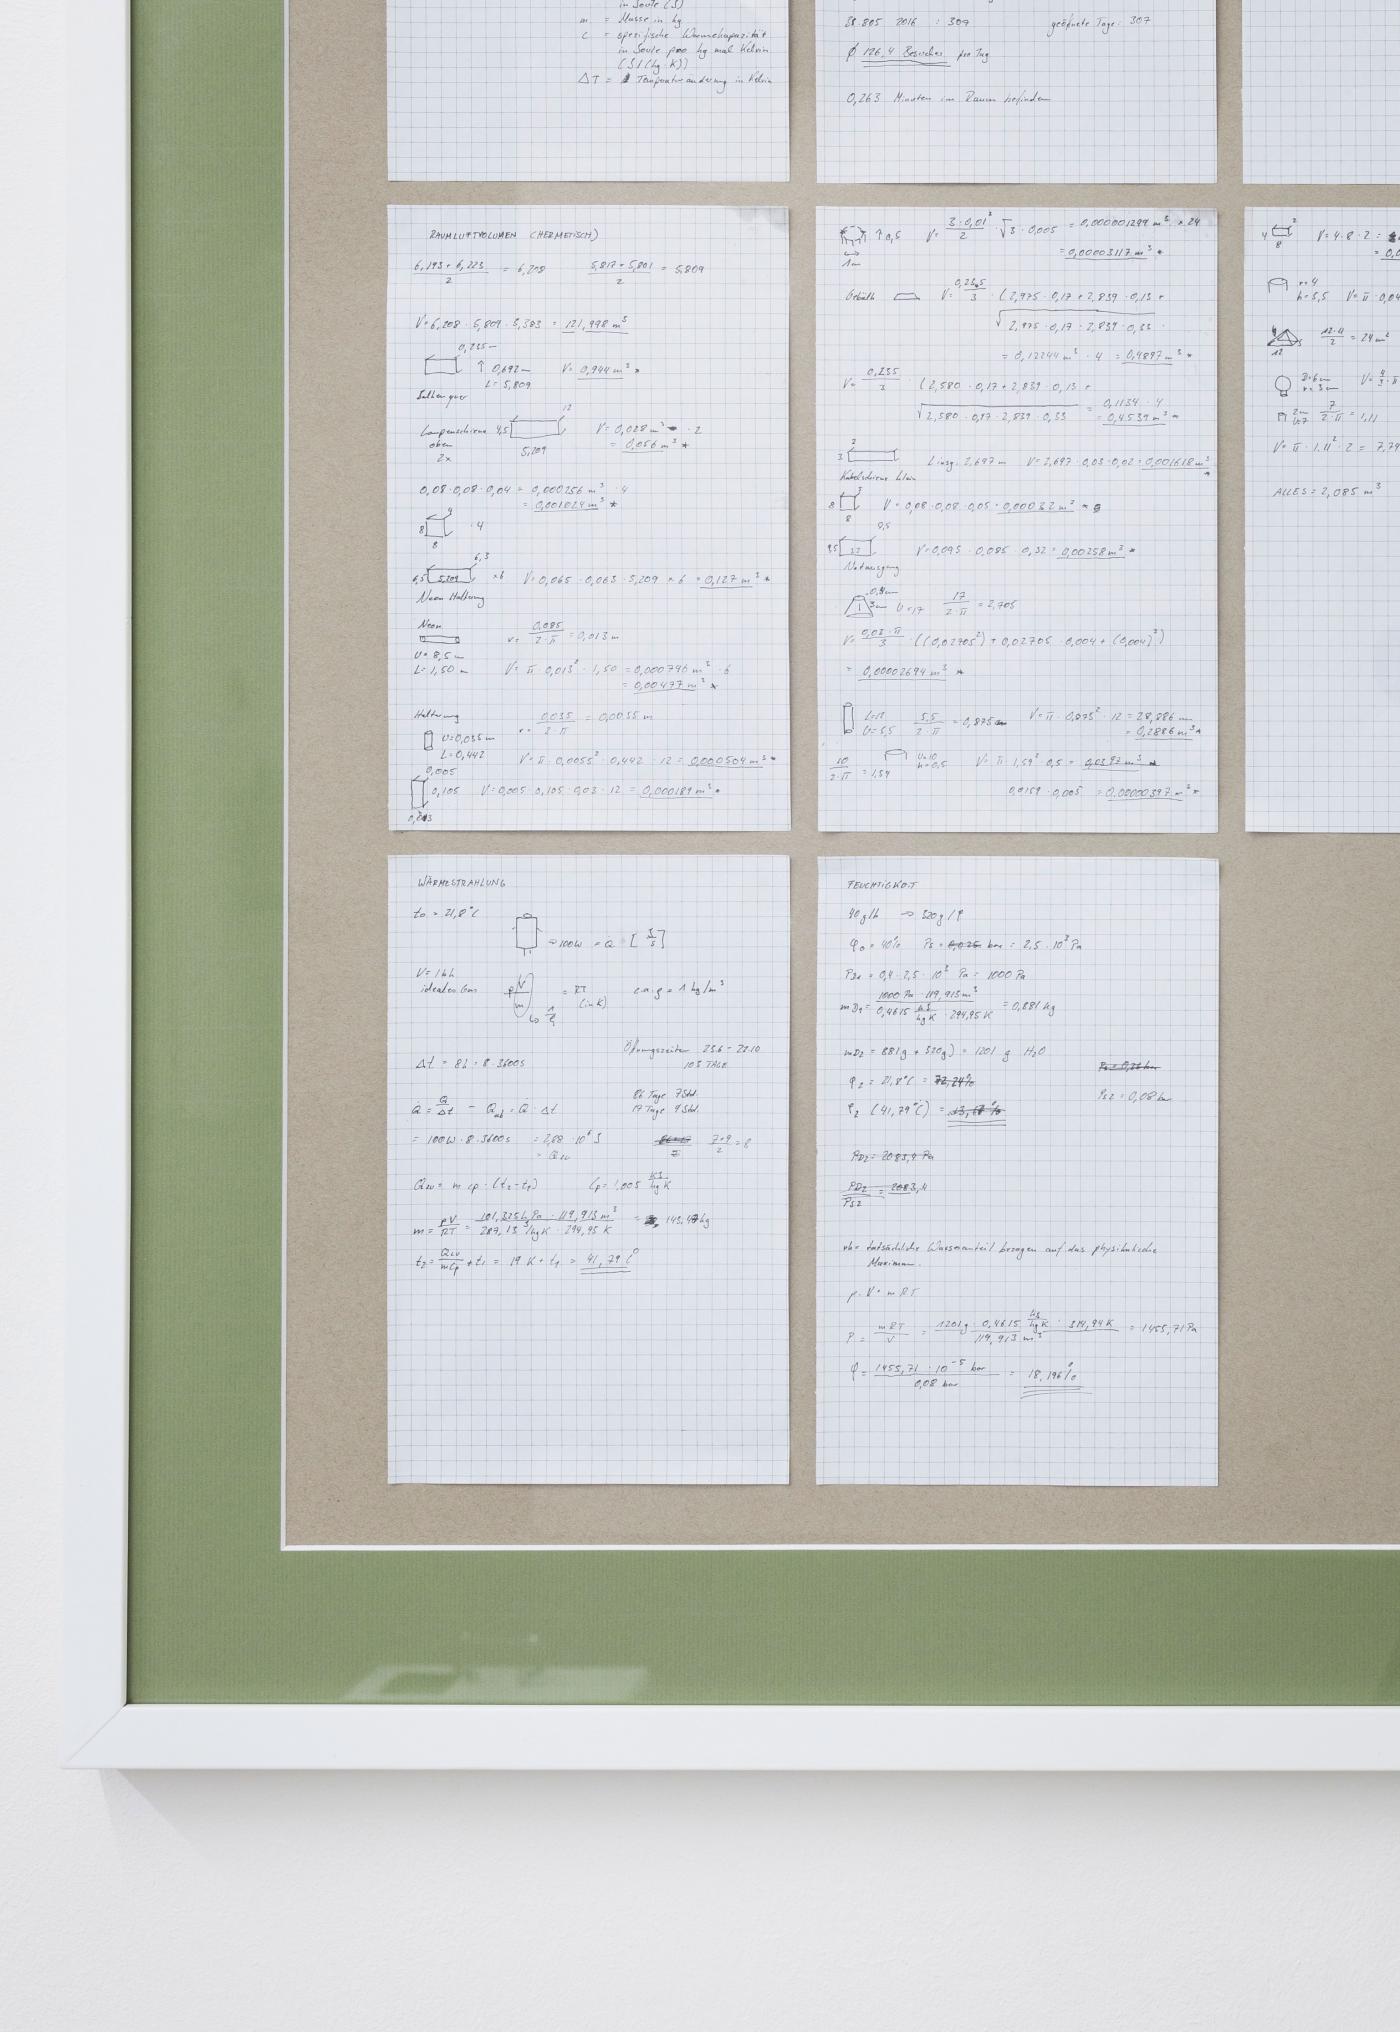 in Joule (J)
m = Masse in kg
c = spezifische Wärmekapazität
in Joule pro kg mal Kelvin
(J/(kg·K))
ΔT = Temperaturänderung in Kelvin
38.805 2016 : 307 geöffnete Tage: 307
Ø 126,4 Besucher pro Tag
0,263 Minuten im Raum befinden
RAUMLUFTVOLUMEN (HERMETISCH)
6,193 + 6,223 / 2 = 6,208 5,817 + 5,801 / 2 = 5,809
V = 6,208 · 5,809 · 3,383 = 121,998 m³
0,235
↑ 0,692 m V = 0,944 m³ *
L = 5,809
Balken quer
12
Lampenschiene 4,5 V = 0,028 m³ · 2
oben 5,209 = 0,056 m³ *
2x
0,08 · 0,08 · 0,04 = 0,000256 m³ · 4
= 0,001024 m³ *
4
8 · 4
8
6,3
6,5 5,209 x6 V = 0,065 · 0,063 · 5,209 x 6 = 0,127 m³ *
Neon Halterung
Neon
r = 0,085 / 2·π = 0,013 m
U = 8,5
L = 1,50 m V = π · 0,013² · 1,50 = 0,000796 m³ · 6
= 0,00477 m³ *
Halterung r = 0,035 / 2·π = 0,0055 m
U = 0,035 m
L = 0,442 V = π · 0,0055² · 0,442 · 12 = 0,000504 m³ *
0,005
0,105 V = 0,005 · 0,105 · 0,03 · 12 = 0,000189 m³ *
↑ 0,5 V = 3 · 0,01² / 2 · √3 · 0,005 = 0,000001299 m³ · x 24
1cm = 0,00003117 m³ *
Gebälk V = 0,235 / 3 · (2,975 · 0,17 + 2,839 · 0,13 +
√ 2,975 · 0,17 · 2,839 · 0,33
= 0,12244 m³ · 4 = 0,4897 m³ *
V = 0,235 / 3 · (2,580 · 0,17 + 2,839 · 0,13 +
√ 2,580 · 0,17 · 2,839 · 0,33 = 0,1134 · 4
= 0,4539 m³ *
2
3 L insg. 2,697 m V = 2,697 · 0,03 · 0,02 = 0,001618 m³ *
Kabelschiene klein
8 V = 0,08 · 0,08 · 0,05 = 0,00032 m³ *
8
8,5
9,5 V = 0,095 · 0,085 · 0,32 = 0,00258 m³ *
Notausgang
3cm U = 17 17 / 2·π = 2,705
V = 0,03 · π / 3 · ((0,02705²) + 0,02705 · 0,004 + (0,004)²)
= 0,00002694 m³ *
L = 12 5,5 / 2·π = 0,875 V = π · 0,875² · 12 = 28,886
U = 5,5 = 0,2886 m³ *
10 / 2·π = 1,59 U = 10 h = 0,5 V = π · 1,59² · 0,5 = 0,0397 m³ *
0,0159 · 0,005 = 0,00000397 m³ *
2
4 V = 4 · 8 · 2 =
8
r = 4
h = 5,5 V = π · 0,04
12 · 4 / 2 = 24 m²
12
D = 6 cm V = 4 / 3 · π
r = 3 cm
2 cm 7 / 2·π = 1,11
U = 7
V = π · 1,11² · 2 = 7,74
ALLES = 2,085 m³
WÄRMESTRAHLUNG
t₀ = 21,8°C
⇒ 100W = Q̇ [J/s]
V = 1kh
ideales Gas pV / m = RT c.a. ρ = 1 kg/m³
(in K)
Öffnungszeiten 23.6 - 22.10
Δt = 8h = 8 · 3600s 103 TAGE
86 Tage 7 Std.
Q̇ = Q / Δt – Qab = Q̇ · Δt 17 Tage 9 Std.
= 100W · 8 · 3600s = 2,88 · 10⁶ J 7+9 / 2 = 8
= Qzu
Qzu = m cp · (t₂ - t₁) Cp = 1,005 kJ / kg K
m = pV / RT = 101,325 hPa · 119,913 m³ / 287,13 J/kgK · 294,95 K = 143,47 kg
t₂ = Qzu / mCp + t₁ = 19 K + t₁ = 41,79 C°
FEUCHTIGKEIT
40 g/h ⇒ 320 g/P
φ₀ = 40% Ps = 0,025 bar = 2,5 · 10³ Pa
PD₁ = 0,4 · 2,5 · 10³ Pa = 1000 Pa
mD₁ = 1000 Pa · 119,913 m³ / 0,4615 kJ/kg K · 294,95 K = 0,881 kg
mD₂ = 881g + 320g) = 1201 g H₂O
Ps = 0,26 bar
φ₂ = 21,8°C = 72,24%
Ps₂ = 0,08 bar
φ₂ (41,79°C) =
PD₂ = 2083,4 Pa
PD₂ / Ps₂ = 2083,4
rh = tatsächliche Wasseranteil bezogen auf das physikalische
Maximum.
p · V = m R T
P = mRT / V = 1201g · 0,4615 kJ/kg K · 314,94 K / 119,913 m³ = 1455,71 Pa
φ = 1455,71 · 10⁻⁵ bar / 0,08 bar = 18,196%